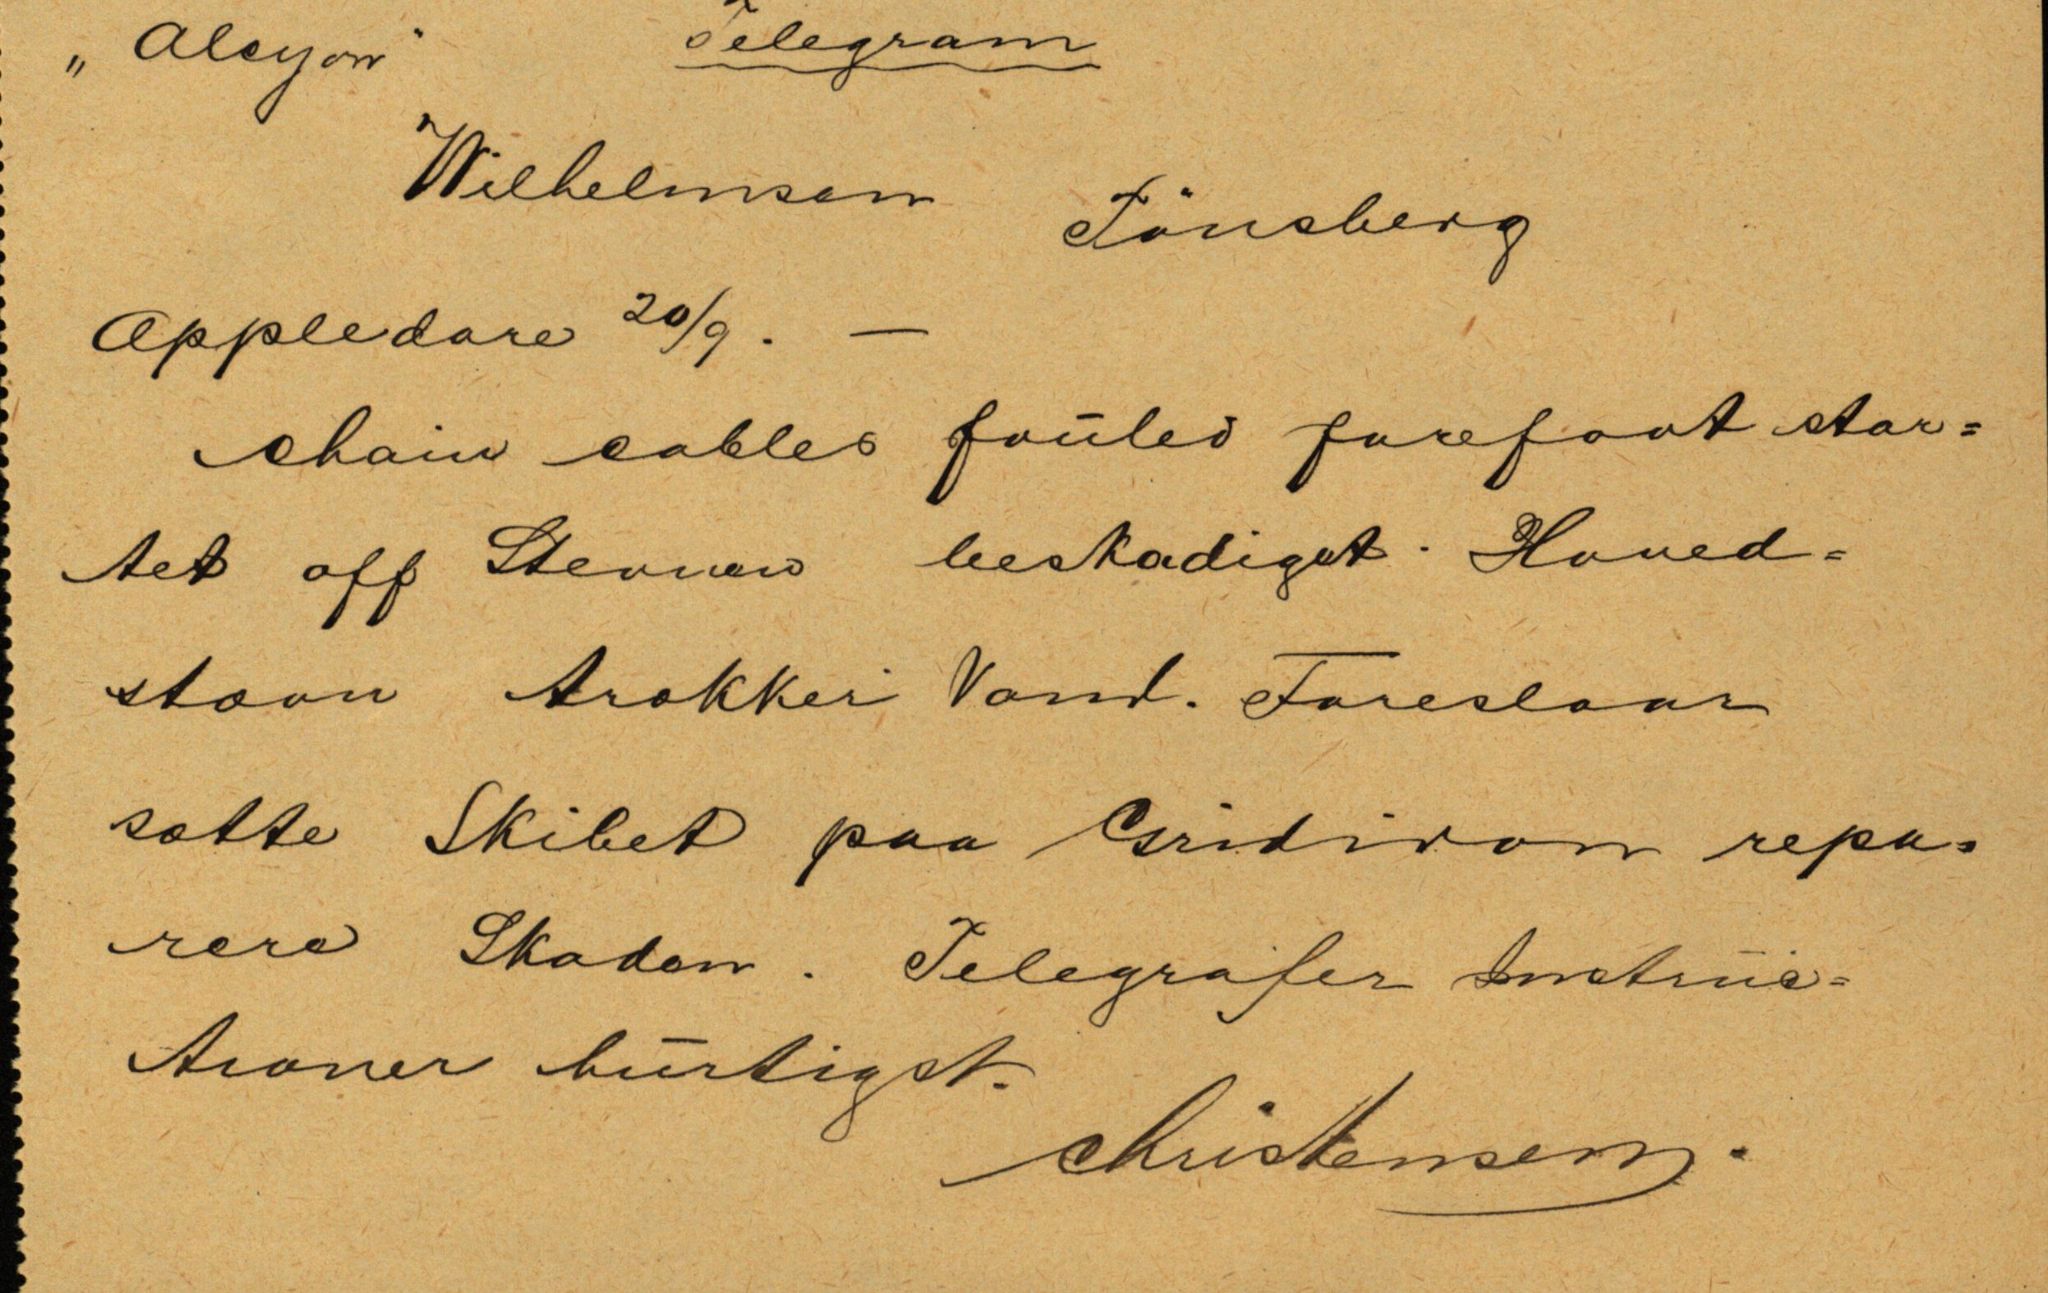 „Alcyon" Telegram
Wilhelmsen Tönsberg
Appledore 20/9. —
chain cables fouled forefoot star=
tet off Stevnen beskadiget. Hoved=
stavn trækker Vand. Foreslaar
sætte Skibet paa Gridiron repa=
rere Skaden. Telegrafer Instruc=
tioner hurtigst.
Christensen.